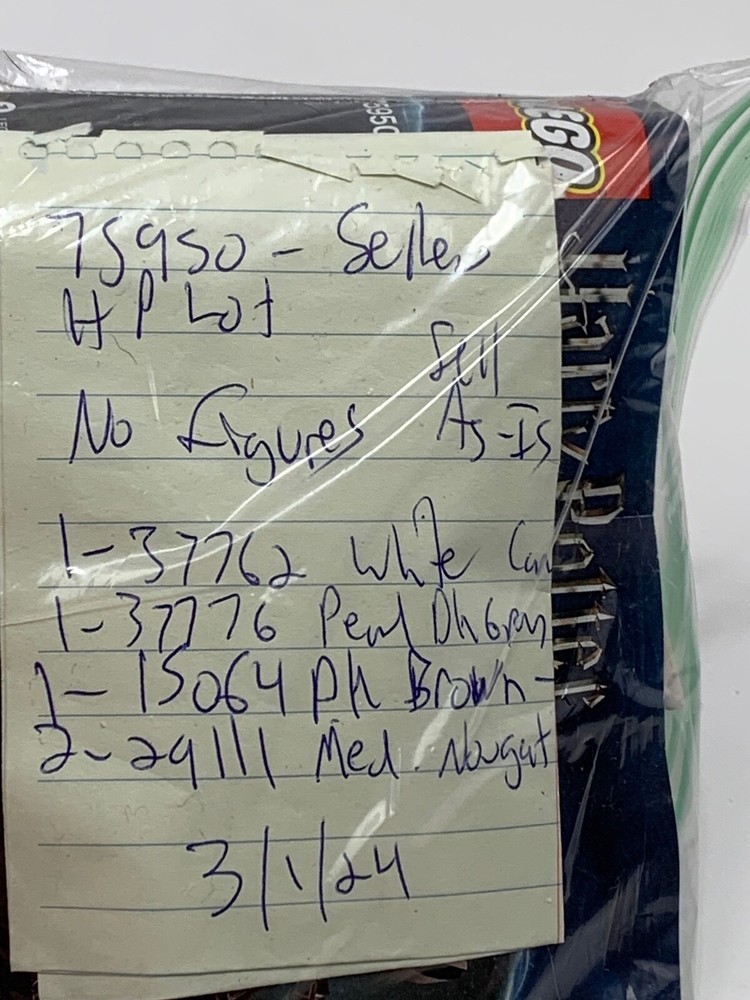 5950
LEGO
Harry Potter
75950 - Sellers
HP Lot
Sell
No figures As-Is
1-37762 White Can
1-37776 Pearl Dk Gray
1-15064 Dk Brown-
2-29111 Med. Nougat
3/1/24